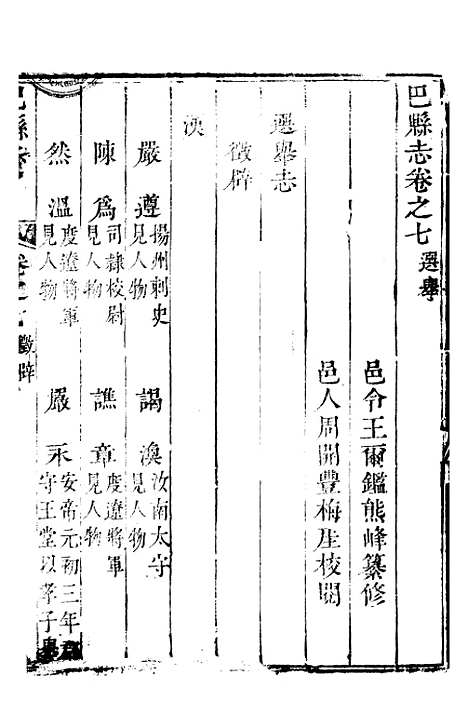 巴縣志卷之七 選舉
邑令王爾鑑熊峰纂修
邑人周開豐梅厓校閱
選舉志
徵辟
漢
嚴遵 揚州刺史 見人物 謁渙 汝南太守 見人物
陳為 司隸校尉 見人物 譙章 度遼將軍 見人物
然溫 度遼將軍 見人物 嚴永 安帝元初三年 守王堂以孝子
巴縣志 卷之七 徵辟